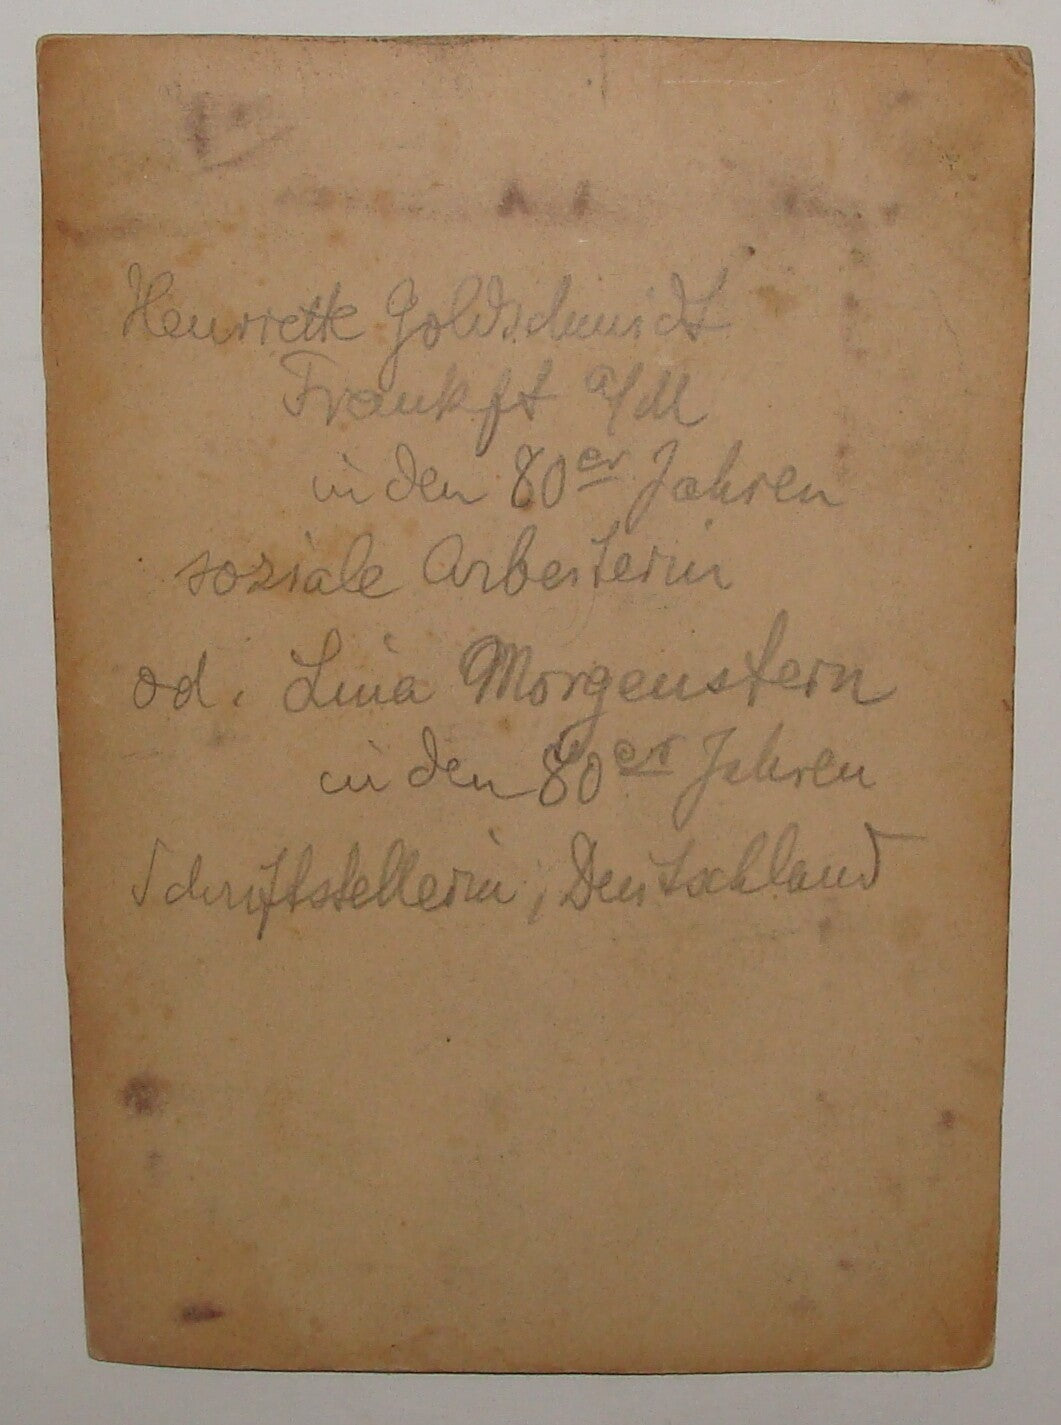 Henriette Goldschmidt
Frankft a/M
in den 80er Jahren
soziale Arbeiterin
od. Lina Morgenstern
in den 80er Jahren
Schriftstellerin, Deutschland